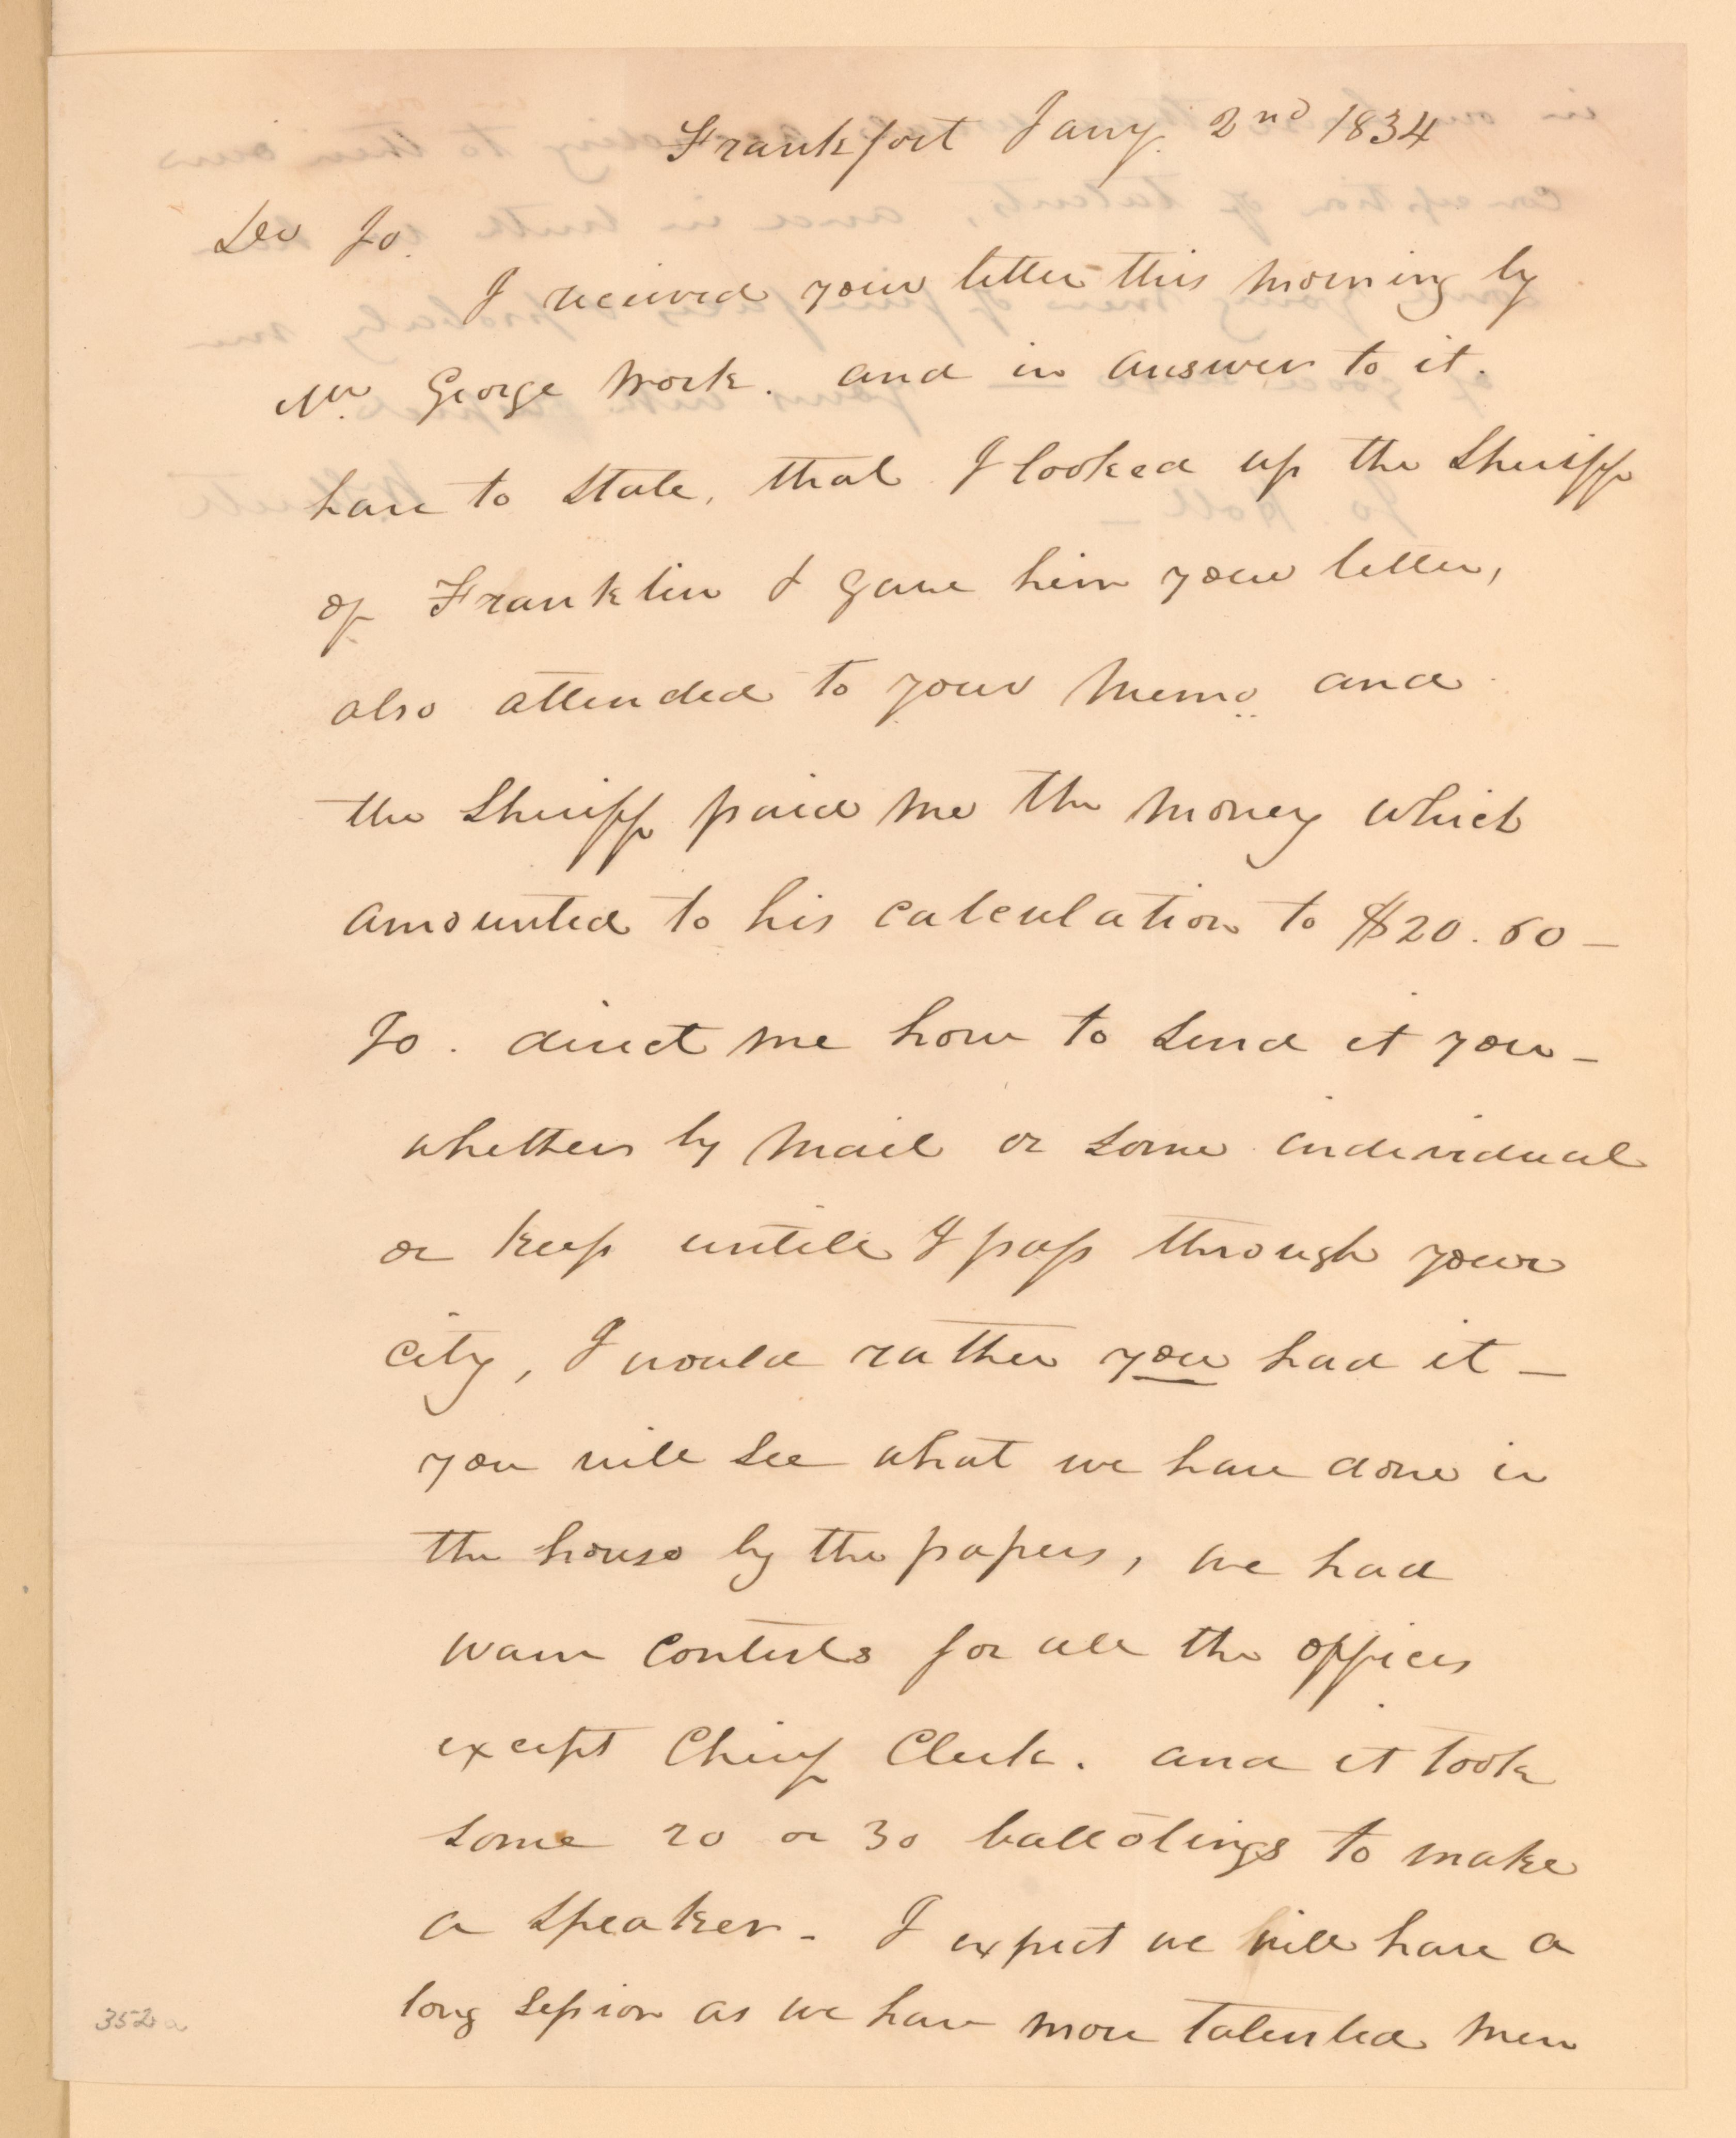 Frankfort Jany. 2nd 1834
Der Jo.
I received your letter this morning by
Mr. George Work. and in answer to it.
have to state, that I looked up the Sheriff
of Franklin & gave him your letter,
also attended to your memo. and
the Sheriff paid me the money which
amounted to his calculation to $20.60 —
Jo. direct me how to send it you —
whether by mail or some individual
or keep untill I pass through your
city, I would rather you had it —
you will see what we have done in
the house by the papers, we had
warm contests for all the offices
except Chief Clerk. and it took
some 20 or 30 ballotings to make
a speaker - I expect we will have a
long session as we have more talented men
352a